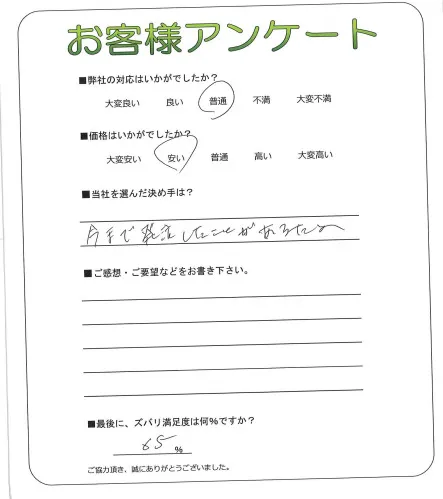 お客様アンケート
■弊社の対応はいかがでしたか？
大変良い 良い 普通 不満 大変不満
■価格はいかがでしたか？
大変安い 安い 普通 高い 大変高い
■当社を選んだ決め手は？
今まで発注したことがあるため
■ご感想・ご要望などをお書き下さい。
■最後に、ズバリ満足度は何%ですか？
65%
ご協力頂き、誠にありがとうございました。